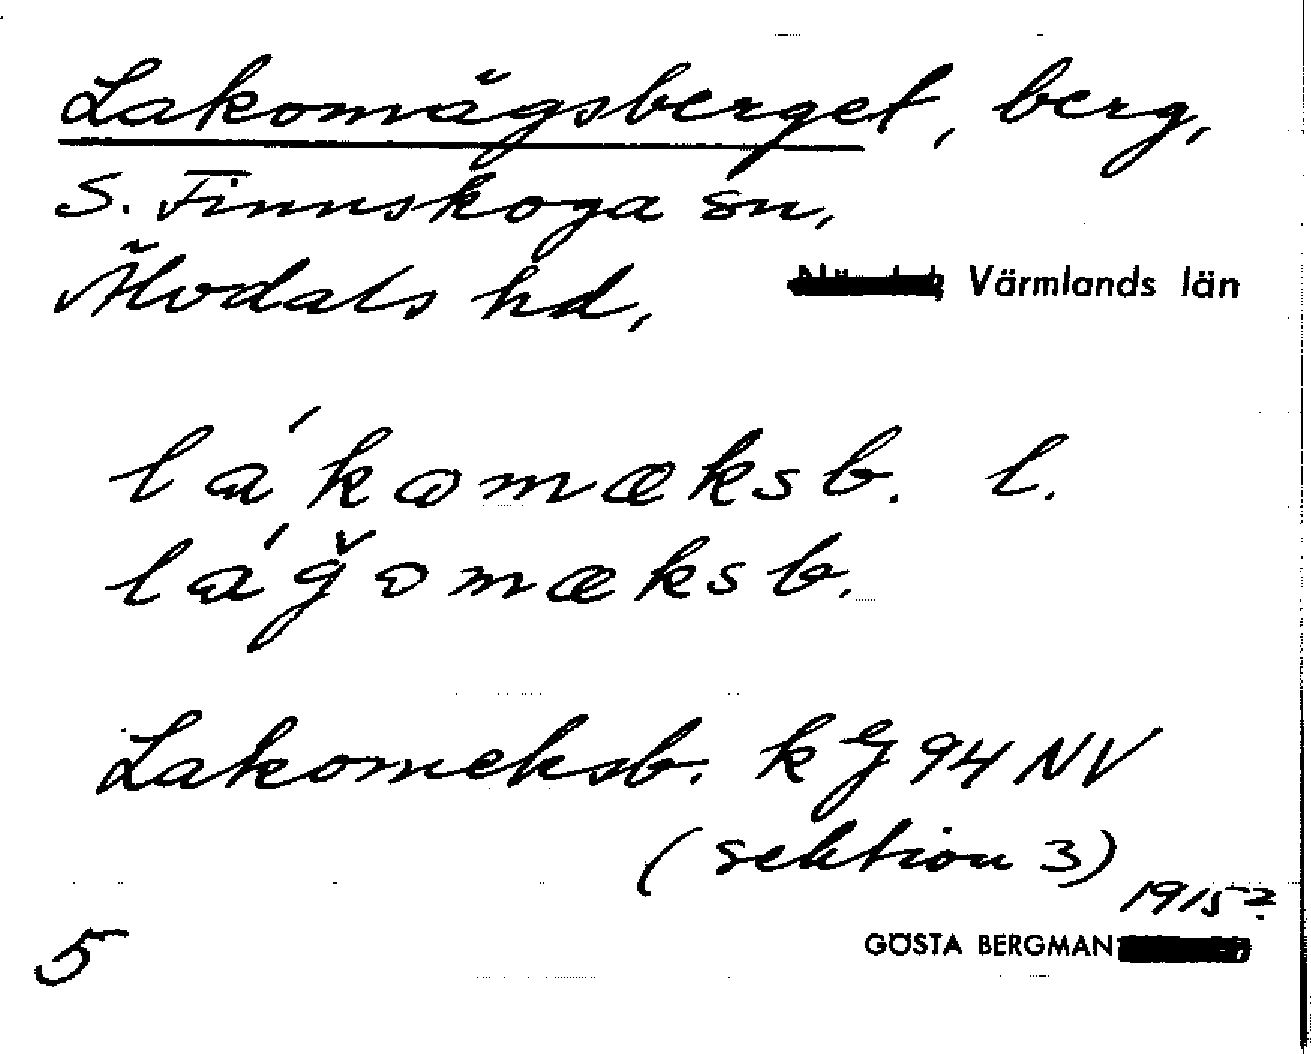 Lakomägsberget, berg,
S. Finnskoga sn,
Älvdals hd, Värmlands län
lákomæksb. l.
láğomæksb.
Lakomeksb. kg 94 NV
(sektion 3)
1915?
5 GÖSTA BERGMAN